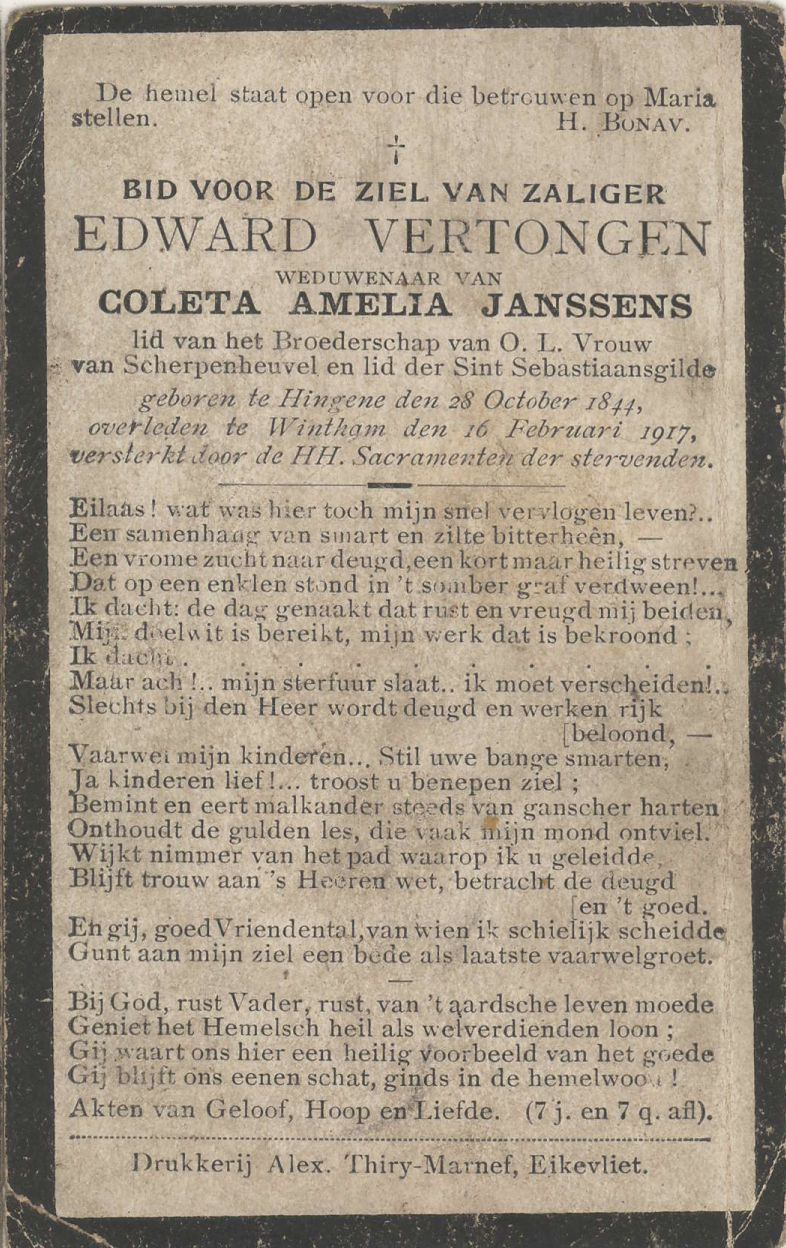 De hemel staat open voor die betrouwen op Maria
stellen. H. BONAV.
BID VOOR DE ZIEL VAN ZALIGER
EDWARD VERTONGEN
WEDUWENAAR VAN
COLETA AMELIA JANSSENS
lid van het Broederschap van O. L. Vrouw
van Scherpenheuvel en lid der Sint Sebastiaansgilde
geboren te Hingene den 28 October 1844,
overleden te Wintham den 16 Februari 1917,
versterkt door de HH. Sacramenten der stervenden.
Eilaas! wat was hier toch mijn snel vervlogen leven?..
Een samenhang van smart en zilte bitterheên, —
Een vrome zucht naar deugd, een kort maar heilig streven
Dat op een enklen stond in 't somber graf verdween!...
Ik dacht: de dag genaakt dat rust en vreugd mij beiden,
Mijn doelwit is bereikt, mijn werk dat is bekroond;
Ik dacht . . . . . . . . . .
Maar ach!.. mijn sterfuur slaat.. ik moet verscheiden!..
Slechts bij den Heer wordt deugd en werken rijk
[beloond, —
Vaarwel mijn kinderen... Stil uwe bange smarten,
Ja kinderen lief!... troost u benepen ziel;
Bemint en eert malkander steeds van ganscher harten
Onthoudt de gulden les, die vaak mijn mond ontviel.
Wijkt nimmer van het pad waarop ik u geleidde,
Blijft trouw aan 's Heeren wet, betracht de deugd
[en 't goed.
En gij, goed Vriendental, van wien ik schielijk scheidde
Gunt aan mijn ziel een bede als laatste vaarwelgroet.
—
Bij God, rust Vader, rust, van 't aardsche leven moede
Geniet het Hemelsch heil als welverdienden loon;
Gij waart ons hier een heilig voorbeeld van het goede
Gij blijft ons eenen schat, ginds in de hemelwoon!
Akten van Geloof, Hoop en Liefde. (7 j. en 7 q. afl).
Drukkerij Alex. Thiry-Marnef, Eikevliet.